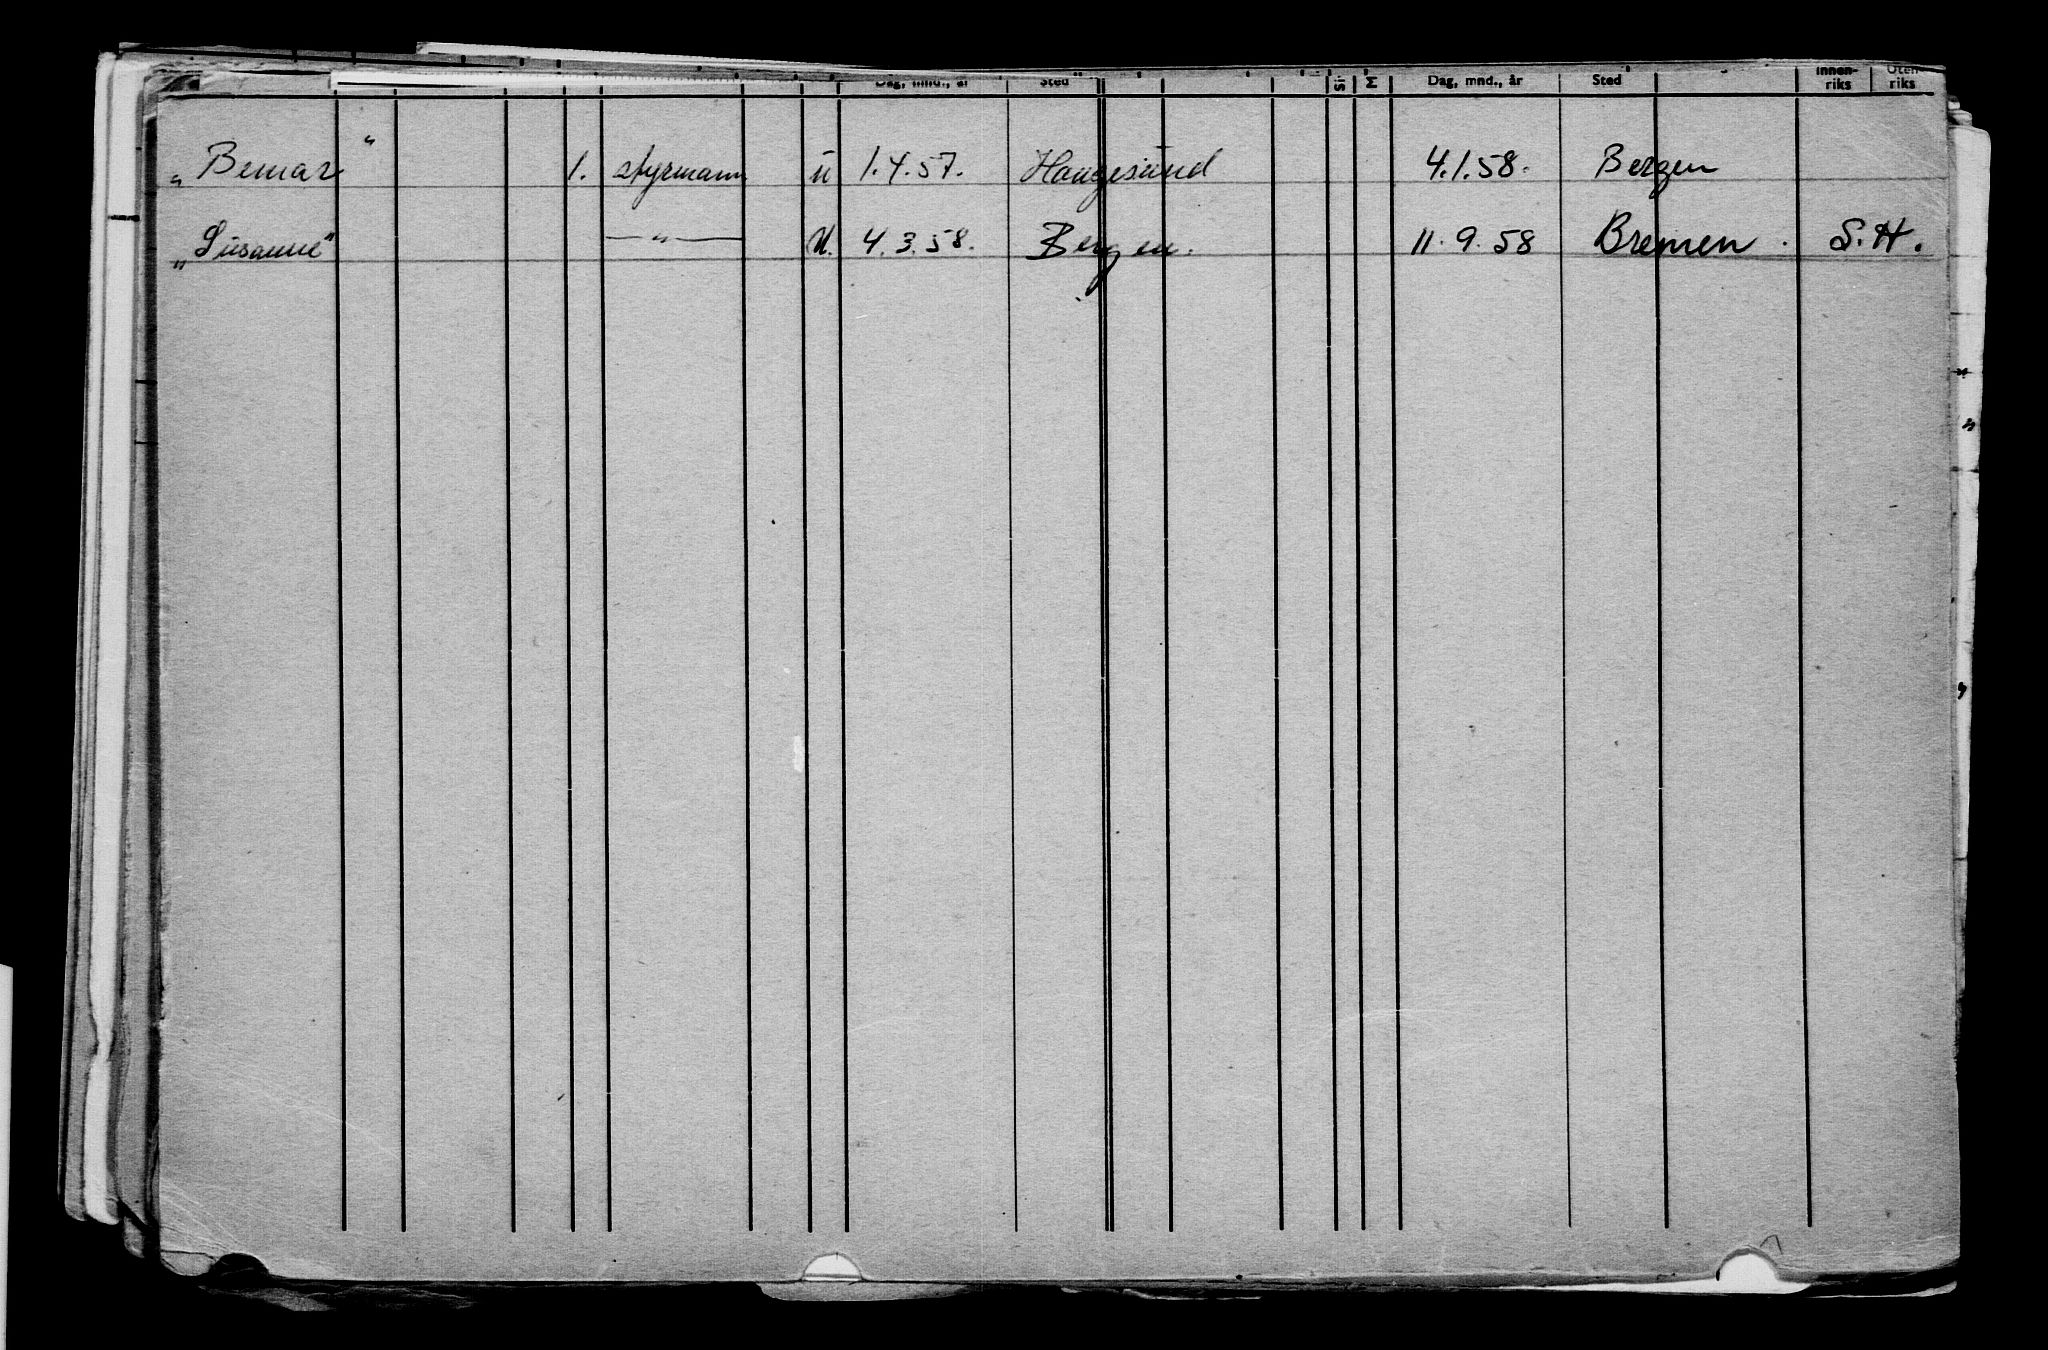 Dag, mnd., år Sted Dag, mnd., år Sted Innen-riks Uten-riks
„Bemar" 1. styrmann u 1.4.57. Haugesund 4.1.58. Bergen
„Susanne" —"— U. 4.3.58. Bergen. 11.9.58 Bremen. S.H.